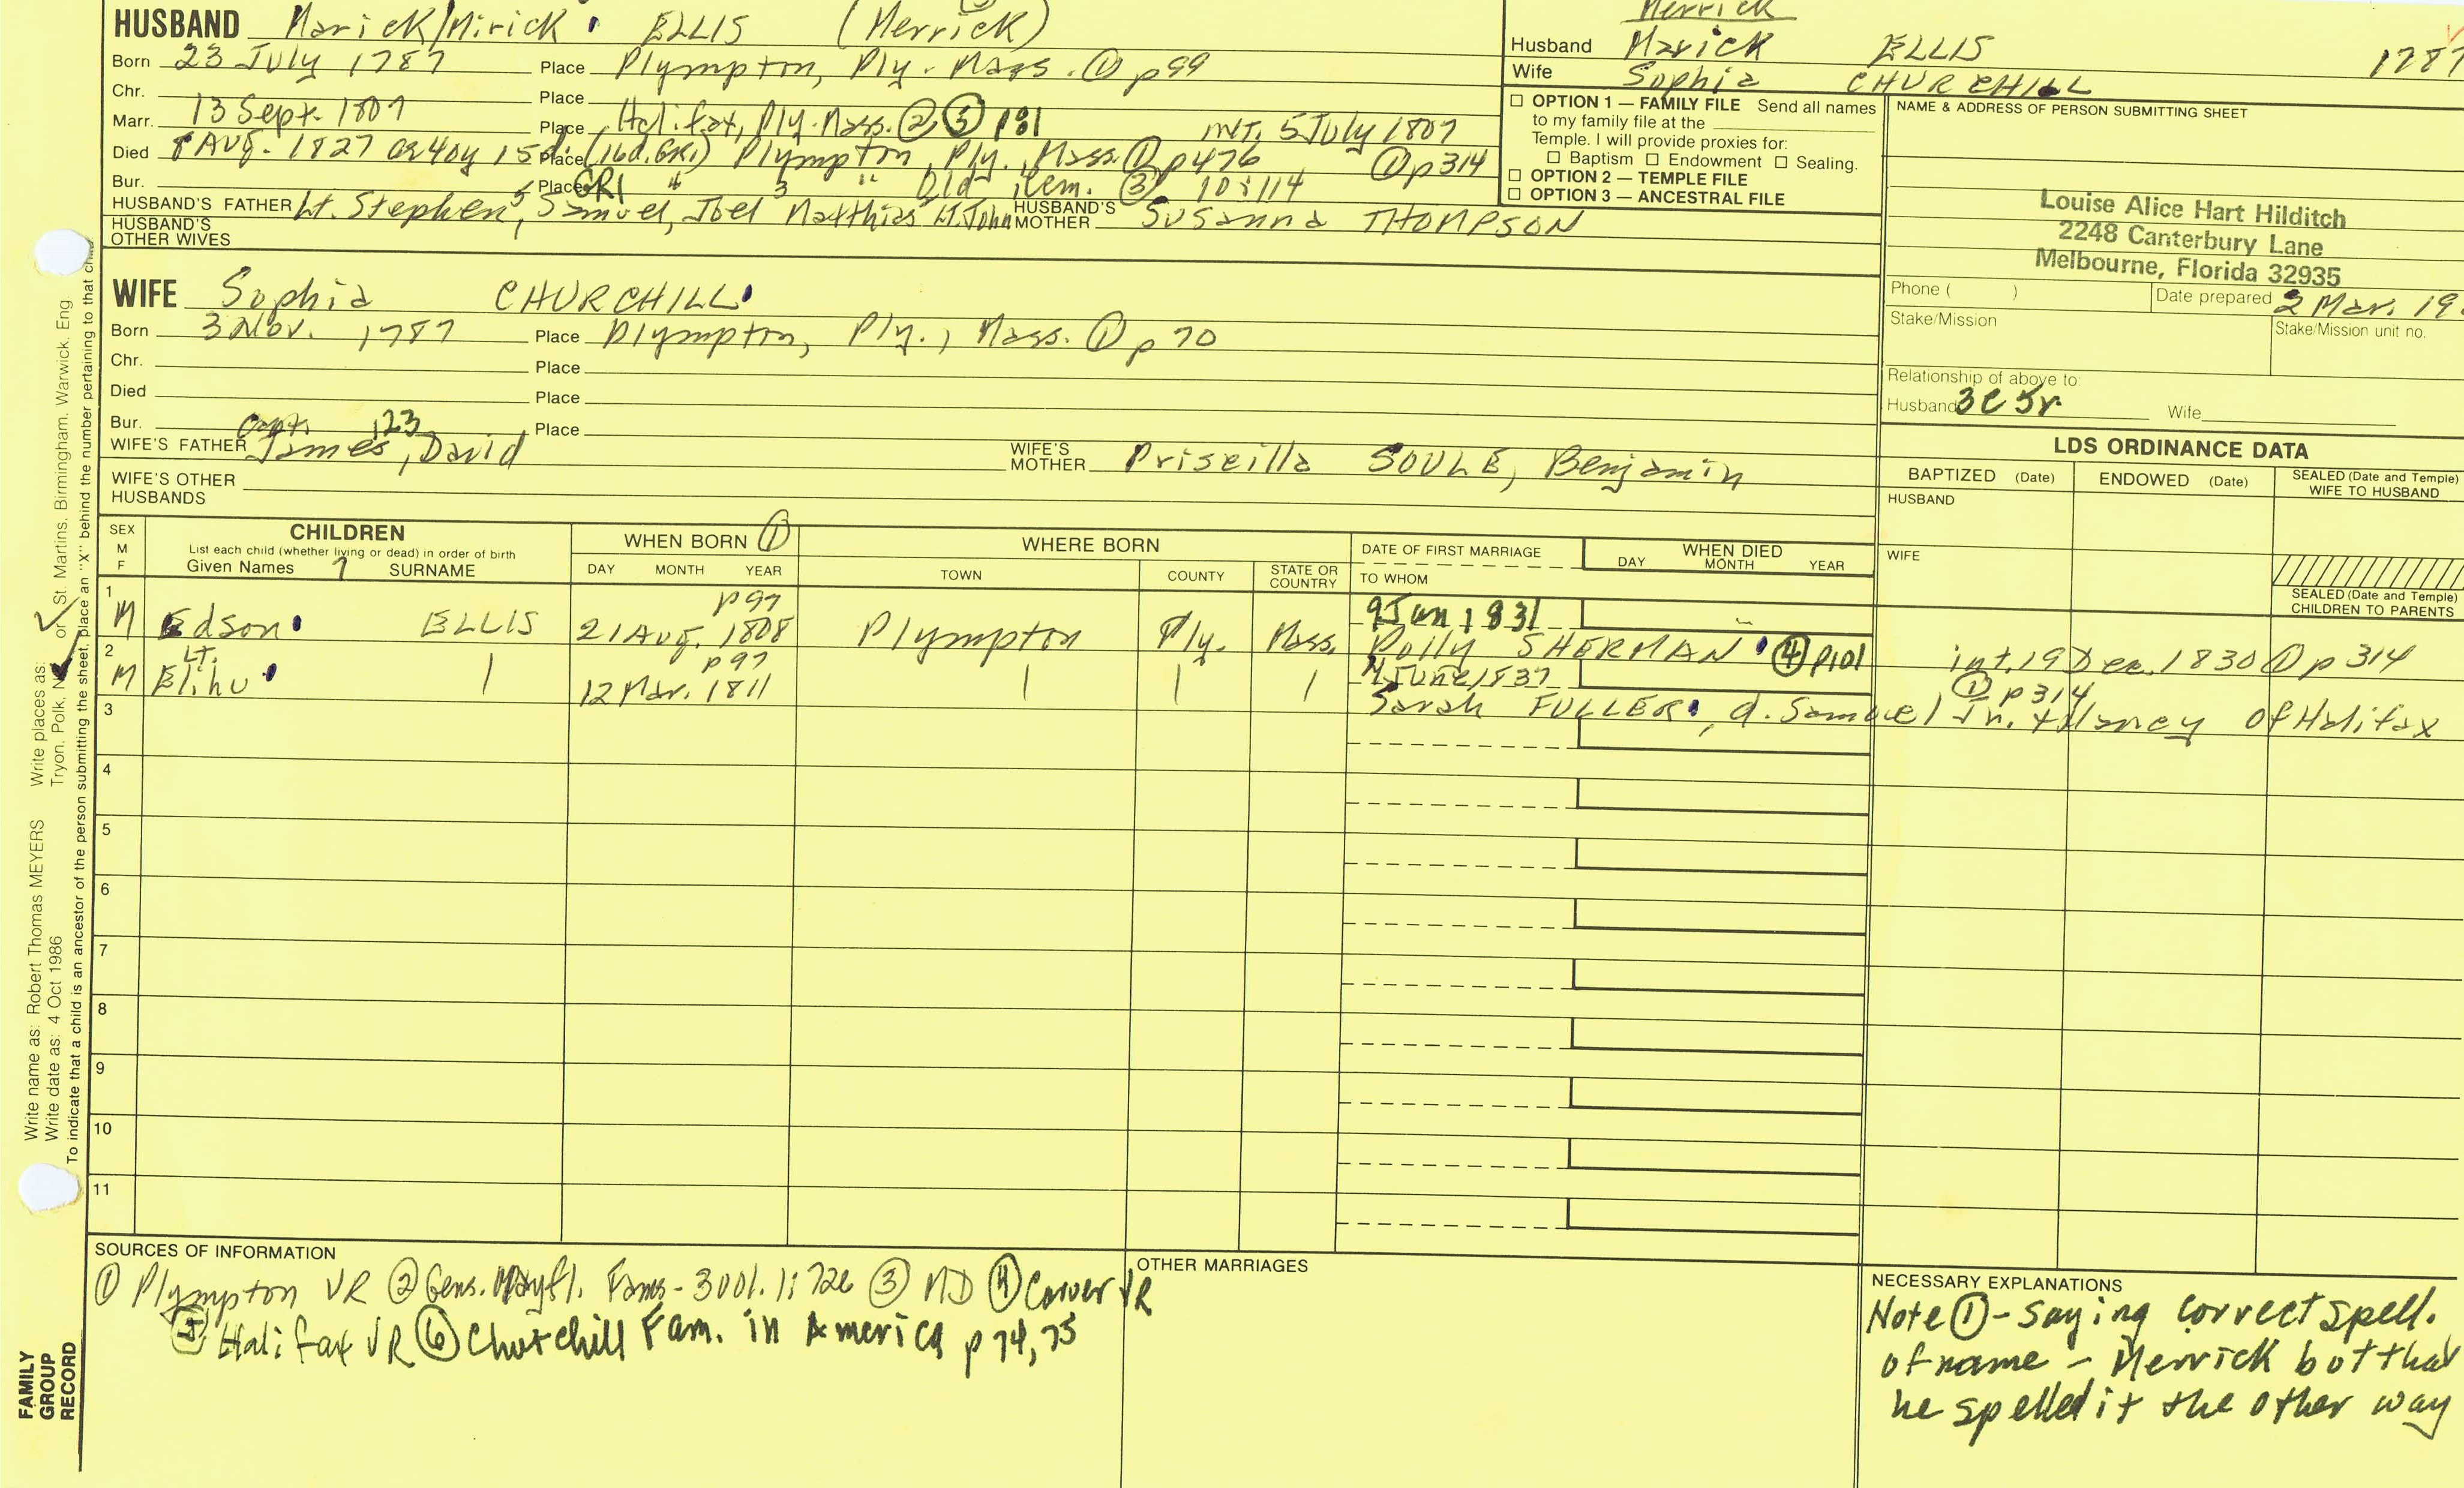 HUSBAND Marick/Mirick ELLIS (Merrick)
Born 23 July 1787 Place Plympton, Ply. Mass. ① p99
Chr. Place
Marr. 13 Sept. 1807 Place Halifax, Ply. Mass. ② ⑤ p31 int. 5 July 1807
Died 8 Aug. 1827 ae 40y 15d. (16d. GR1) Place Plympton, Ply., Mass. ① p476 ① p314
Bur. Place GR1 " " Old Cem. ③ 10:114
HUSBAND'S FATHER Lt. Stephen⁵, Samuel, Joel Matthias Lt. John HUSBAND'S MOTHER Susanna THOMPSON
HUSBAND'S OTHER WIVES
Merrick
Husband Marick ELLIS 1787
Wife Sophia CHURCHILL
☐ OPTION 1 — FAMILY FILE Send all names
to my family file at the
Temple. I will provide proxies for:
☐ Baptism ☐ Endowment ☐ Sealing.
☐ OPTION 2 — TEMPLE FILE
☐ OPTION 3 — ANCESTRAL FILE
NAME & ADDRESS OF PERSON SUBMITTING SHEET
Louise Alice Hart Hilditch
2248 Canterbury Lane
Melbourne, Florida 32935
Phone ( ) Date prepared 2 Mar. 19
Stake/Mission Stake/Mission unit no.
Relationship of above to:
Husband 3C5r Wife
WIFE Sophia CHURCHILL
Born 3 Nov. 1787 Place Plympton, Ply., Mass. ① p70
Chr. Place
Died Place
Bur. Place
Capt. 123
WIFE'S FATHER James, David WIFE'S MOTHER Priscilla SOULE, Benjamin
WIFE'S OTHER HUSBANDS
LDS ORDINANCE DATA
BAPTIZED (Date) ENDOWED (Date) SEALED (Date and Temple) WIFE TO HUSBAND
HUSBAND
WIFE
SEALED (Date and Temple) CHILDREN TO PARENTS
SEX M F
CHILDREN
List each child (whether living or dead) in order of birth
Given Names 7 SURNAME
WHEN BORN ①
DAY MONTH YEAR
WHERE BORN
TOWN COUNTY STATE OR COUNTRY
DATE OF FIRST MARRIAGE
TO WHOM
WHEN DIED
DAY MONTH YEAR
1 p97 9 Jan 1831
M Edson ELLIS 21 Aug. 1808 Plympton Ply. Mass. Polly SHERMAN ④ p101 int. 19 Dec. 1830 ① p314
2 Lt. p97 4 June 1837 ① p314
M Elihu 12 Mar. 1811 Sarah FULLER, d. Samuel Jn. + Nancy of Halifax
3
4
5
6
7
8
9
10
11
SOURCES OF INFORMATION
① Plympton VR ② Gens. Mayfl. Fams - 3 vol. 1:726 ③ MD ④ Carver VR
⑤ Halifax VR ⑥ Churchill Fam. in America p 74, 75
OTHER MARRIAGES
NECESSARY EXPLANATIONS
Note ① - saying correct spell.
of name - Merrick but that
he spelled it the other way
Write name as: Robert Thomas MEYERS Write places as: Tryon, Polk, N or St. Martins, Birmingham, Warwick, Eng
Write date as: 4 Oct 1986
To indicate that a child is an ancestor of the person submitting the sheet, place an "X" behind the number pertaining to that
FAMILY GROUP RECORD